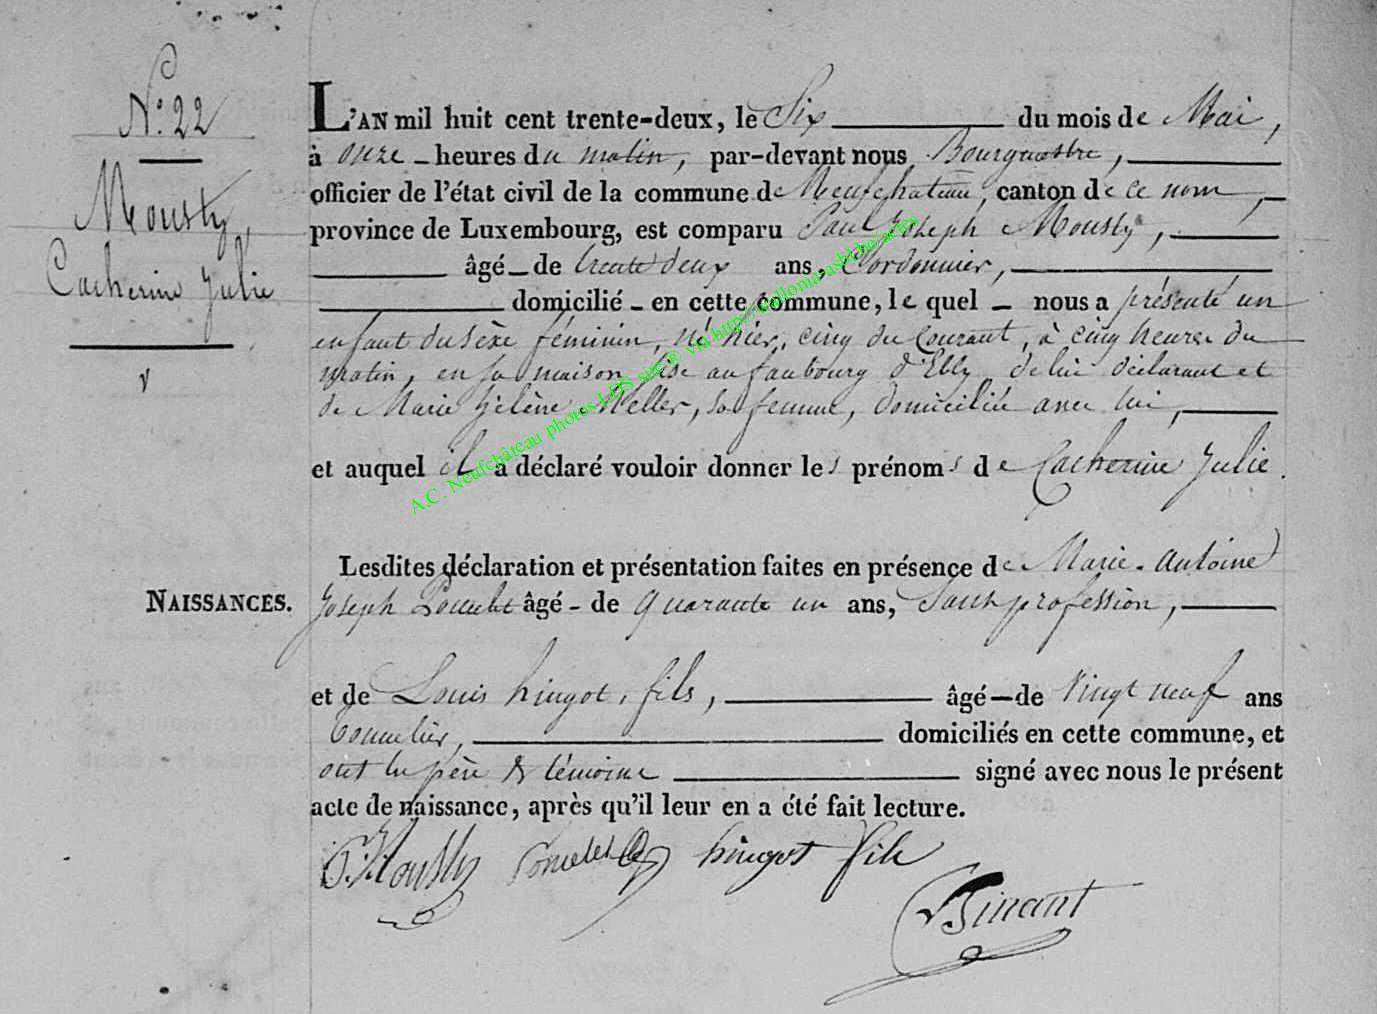 N.° 22
Mousty,
Catherine Julie
v
NAISSANCES.
L'AN mil huit cent trente-deux, le Six du mois de Mai,
à onze heures du matin, par-devant nous Bourgmestre,
officier de l'état civil de la commune de Neufchateau, canton de ce nom,
province de Luxembourg, est comparu Paul Joseph Mousty,
âgé de trente deux ans, Cordonnier,
domicilié en cette commune, le quel nous a présenté un
enfant du sèxe féminin, né hier, cinq du Courant, à cinq heures du
matin, en sa maison sise au faubourg d'Elly de lui déclarant et
de Marie hélène Keller, sa femme, domiciliée avec lui,
et auquel il a déclaré vouloir donner les prénoms de Catherine Julie.
Lesdites déclaration et présentation faites en présence de Marie-Antoine
Joseph âgé de quarante un ans, Sans profession,
et de Louis hingot, fils, âgé de Vingt neuf ans
tonnelier, domiciliés en cette commune, et
ont le père & témoins signé avec nous le présent
acte de naissance, après qu'il leur en a été fait lecture.
P. J. Mousty hingot fils
Binant
A.C. Neufchâteau photos LDS sur ® via http://wallonia-asbl.be actes